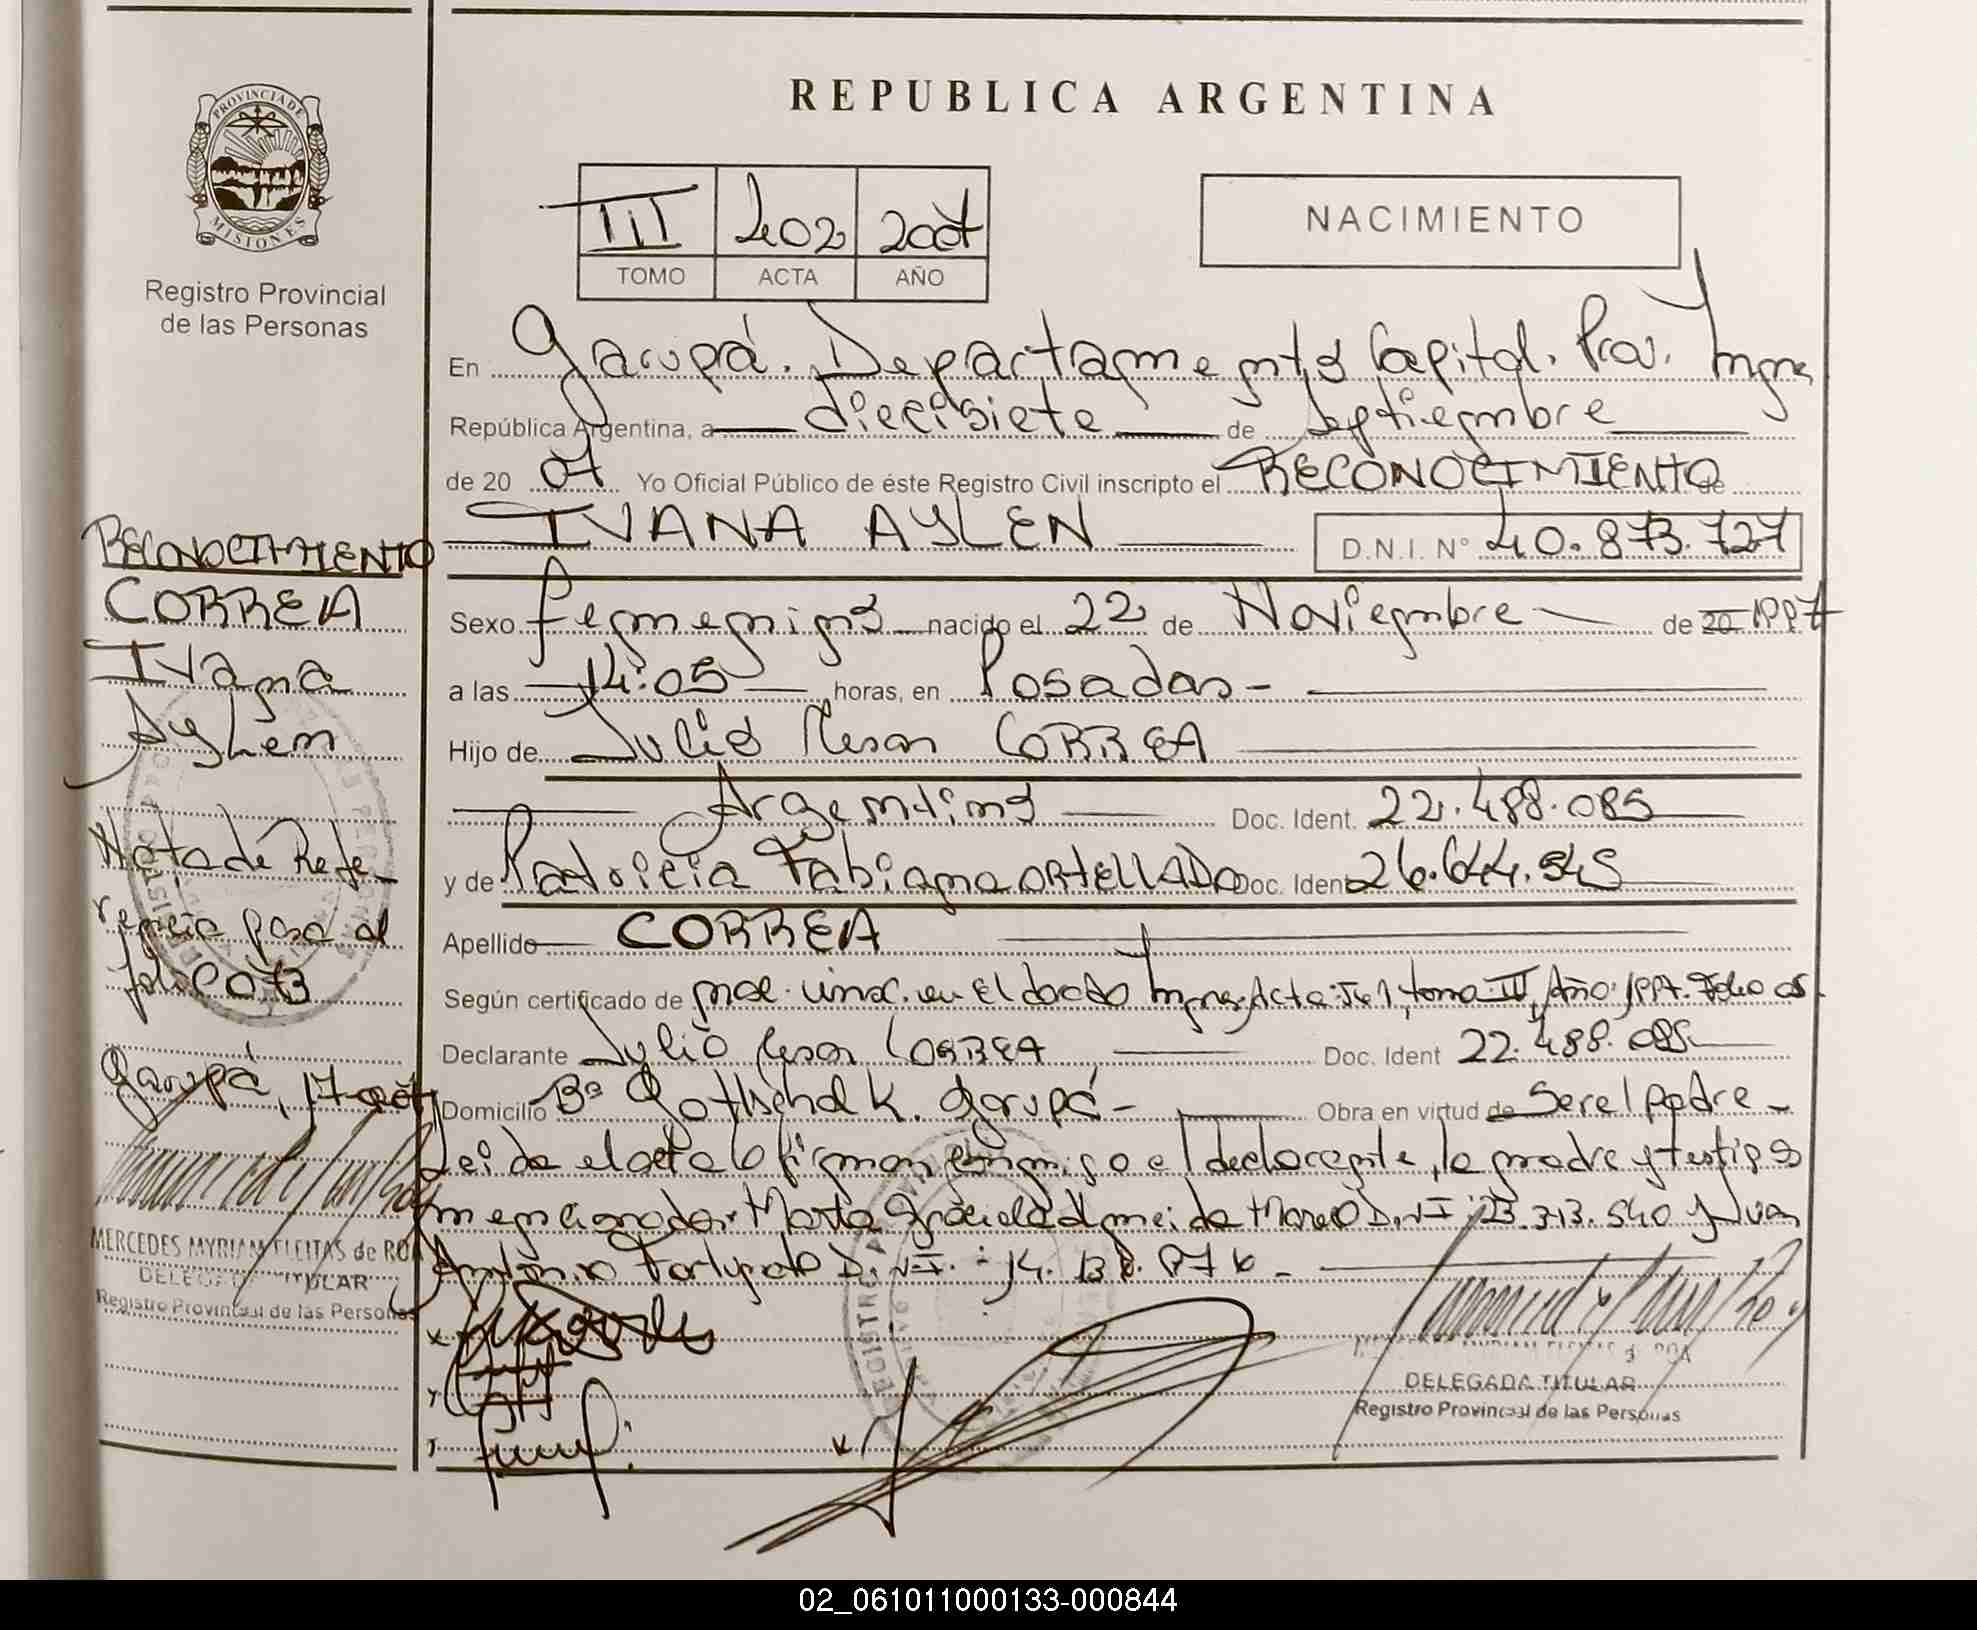 REPUBLICA ARGENTINA
PROVINCIA DE
MISIONES
Registro Provincial
de las Personas
III 402 2007
TOMO ACTA AÑO
NACIMIENTO
En Garupá. Departamento Capital. Prov. Mnes
República Argentina, a diecisiete de Septiembre
de 20 07 Yo Oficial Público de éste Registro Civil inscripto el RECONOCIMIENTO de
IVANA AYLEN D.N.I. N° 40.873.727
Sexo femenino nacido el 22 de Noviembre de 20 1997
a las 14:05 horas, en Posadas-
Hijo de Julio Cesar CORREA
Argentino Doc. Ident. 22.488.085
y de Patricia Fabiana ORTELLADO Doc. Ident 26.644.545
Apellido CORREA
Según certificado de nac. insc. en Eldorado Mnes. Acta: tomo III, Año: 1997. Folio
Declarante Julio Cesar CORREA Doc. Ident 22.488.085
Domicilio B° Gothschalk. Garupá- Obra en virtud de Ser el padre-
Leida el acta lo firman conmigo el declarante, la madre y testigos
mencionados: Marta Graciela Almeida D.N.I: 23.313.540 y Juan
Antonio D.N.I.:
DELEGADA TITULAR
Registro Provincial de las Personas
RECONOCIMIENTO
CORREA
Ivana
Aylen
Nota de Refe-
rencia pasa al
folio 073
Garupá, 17-
MERCEDES MYRIAM FLEITAS de ROA
DELEGADA TITULAR
Registro Provincial de las Personas
02_061011000133-000844